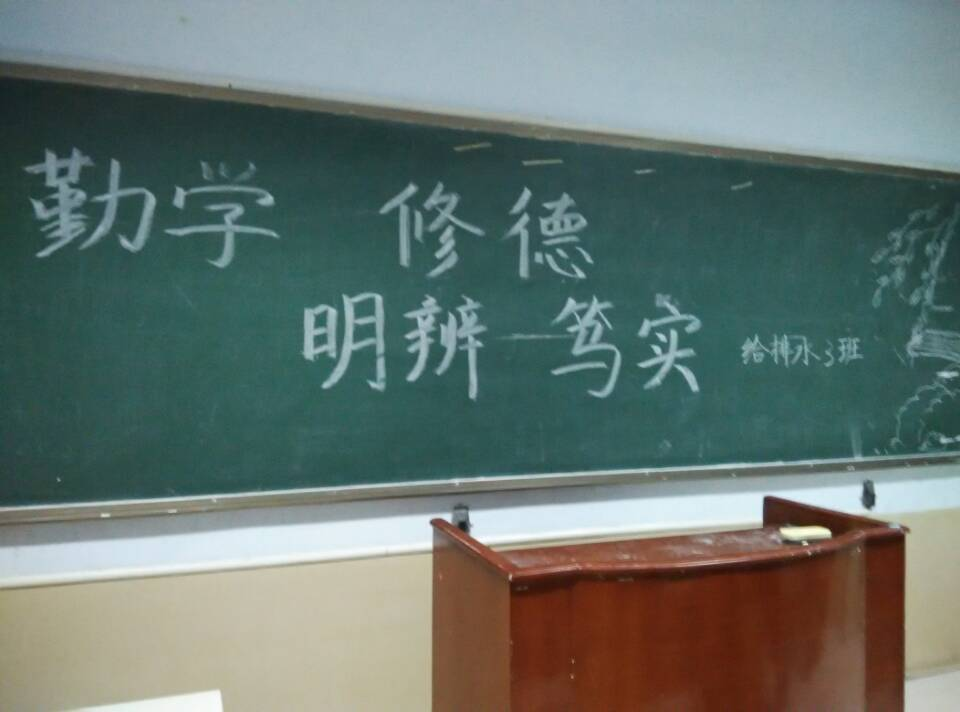 勤学 修德
明辨 笃实
给排水3班